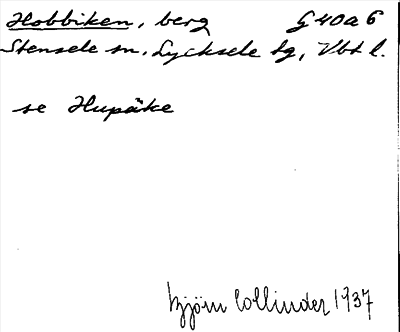 Hobbiken, berg G 40a 6
Stensele sn, Lycksele tg, Vbt l.
se Hupåke
Björn Collinder 1937